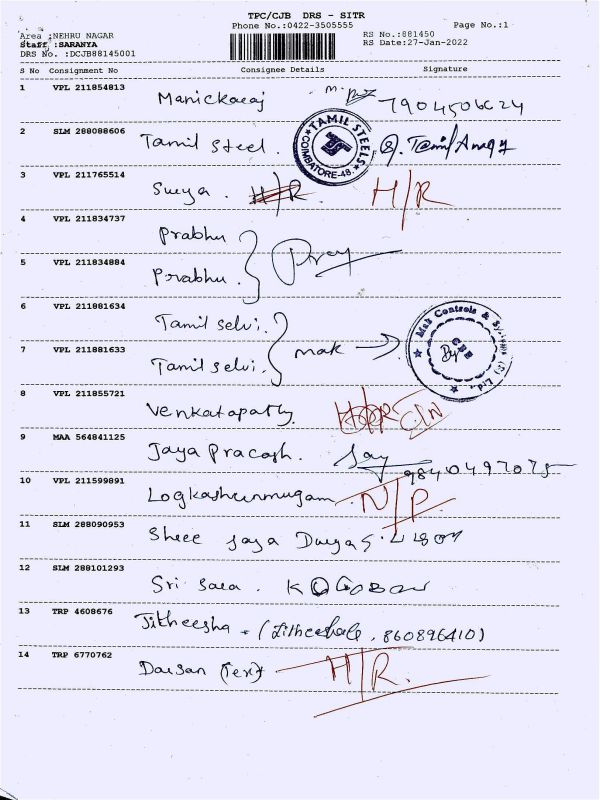 TPC/CJB DRS - SITR
Phone No.:0422-3505555 Page No.:1
Area :NEHRU NAGAR RS No.:881450
Staff :SARANYA RS Date:27-Jan-2022
DRS No. :DCJB88145001
S No Consignment No Consignee Details Signature
1 VPL 211854813 Manickaraj 7904506624
2 SLM 288088606 Tamil Steel. TAMIL STEELS COIMBATORE-48.
3 VPL 211765514 Surya. H/R H/R
4 VPL 211834737 Prabhu
5 VPL 211834884 Prabhu.
6 VPL 211881634 Tamil selvi.
7 VPL 211881633 Tamil selvi. mak Mak Controls & Systems (P) Ltd., CBE
8 VPL 211855721 Venkatapathy
9 MAA 564841125 Jaya Pracash. Jay 9840497075
10 VPL 211599891 N/P.
11 SLM 288090953 Shree Jaya Durgas.
12 SLM 288101293 Sri Sara.
13 TRP 4608676 Jitheesha - 860896410)
14 TRP 6770762 Darsan (Tex) H/R.